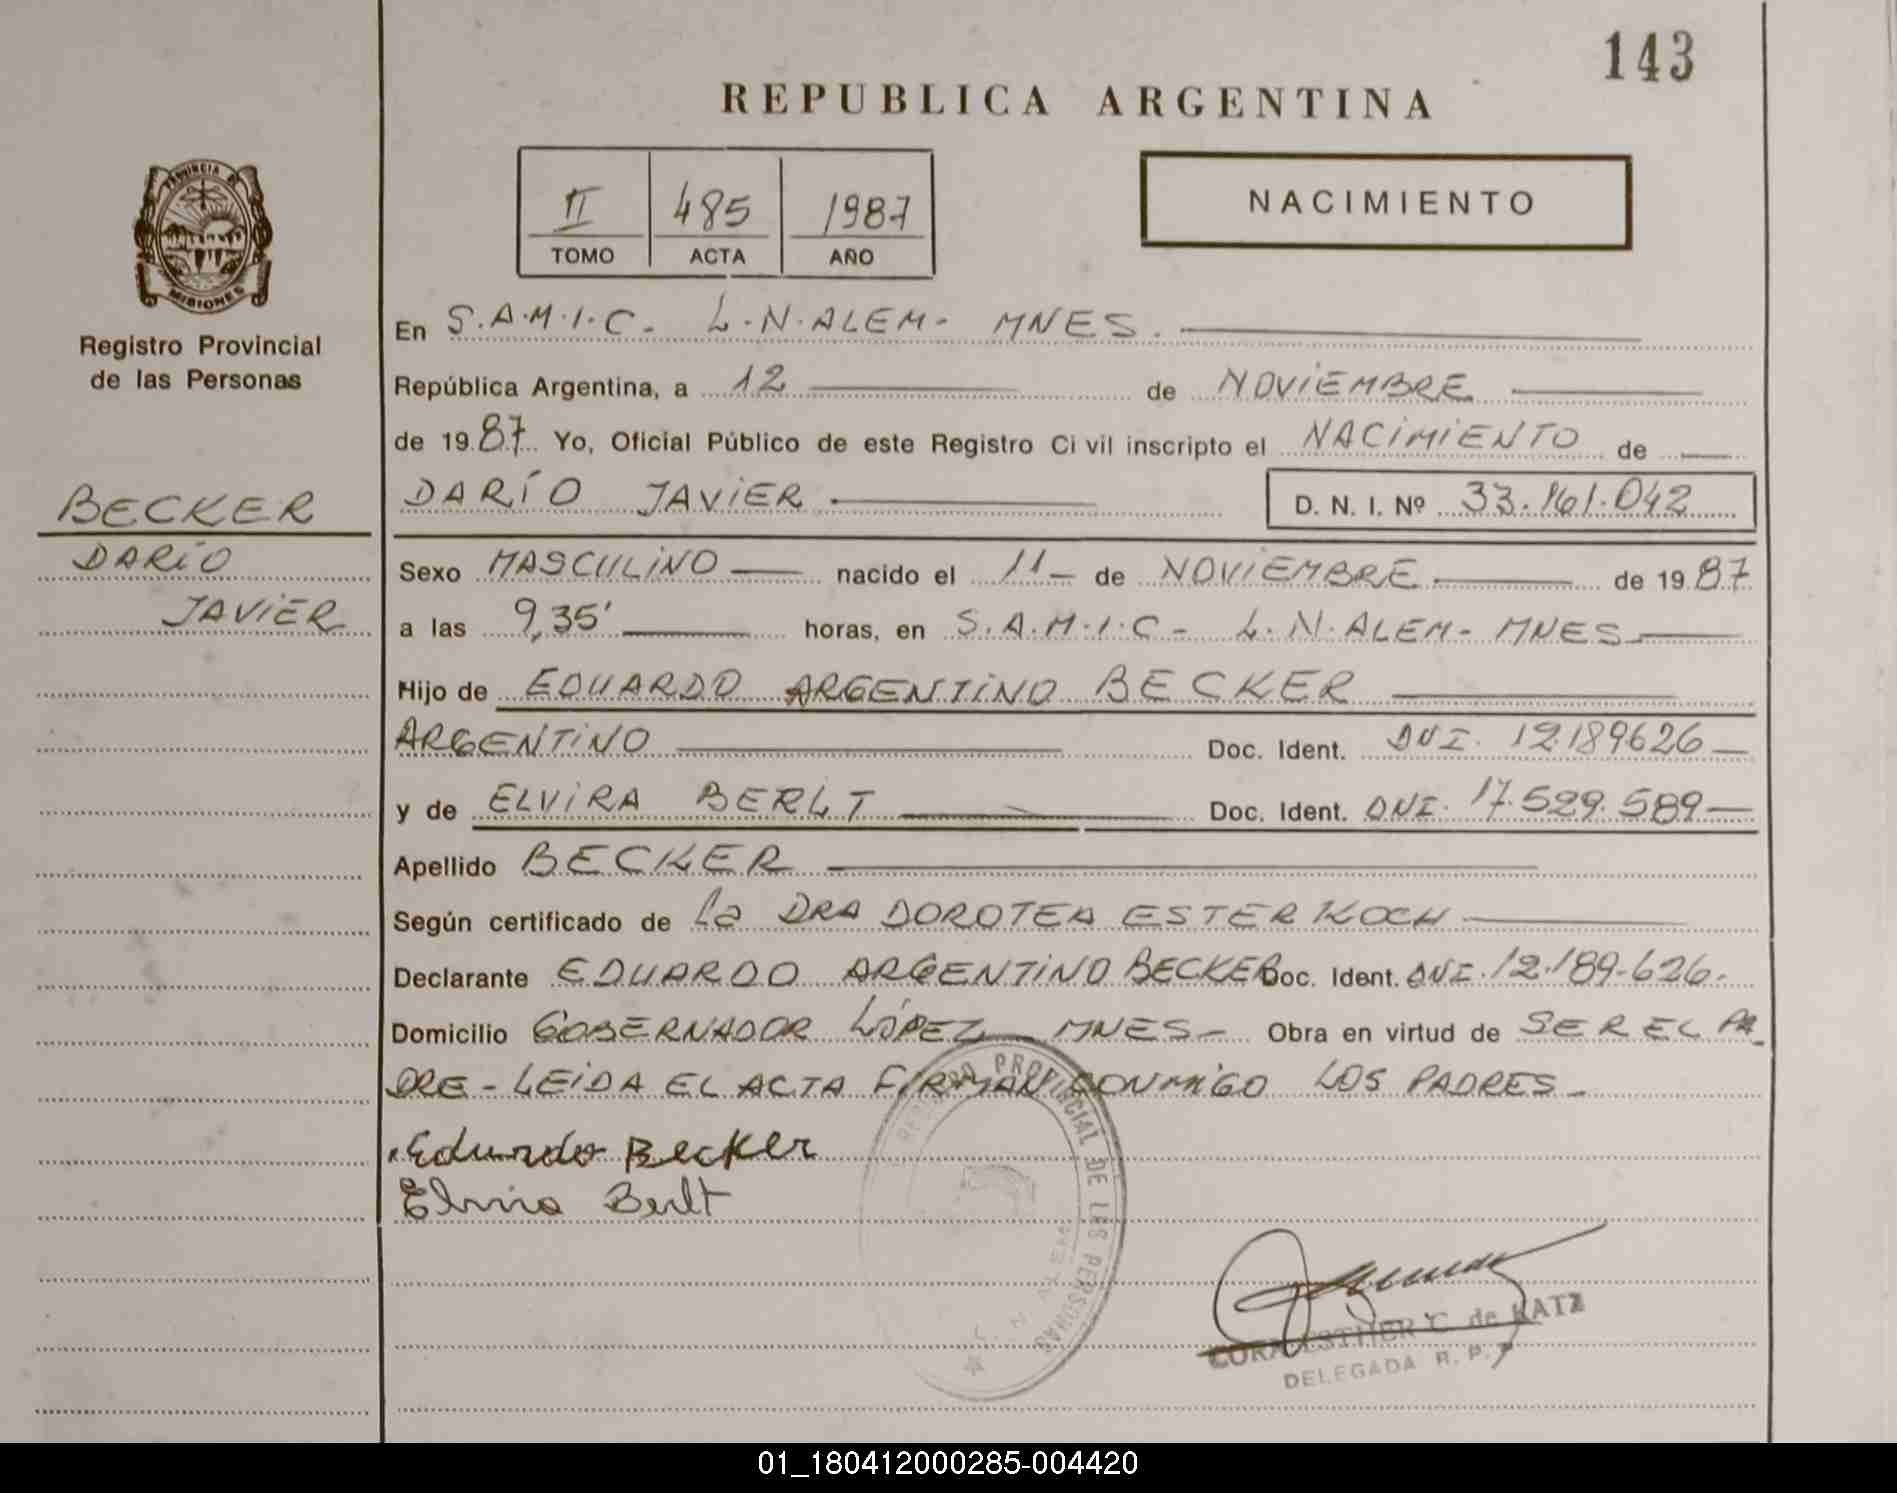 143
REPUBLICA ARGENTINA
PROVINCIA DE
MISIONES
Registro Provincial
de las Personas
II 485 1987
TOMO ACTA AÑO
NACIMIENTO
En S.A.M.I.C- L.N.ALEM- MNES.
República Argentina, a 12 de NOViEMBRE
de 1987 Yo, Oficial Público de este Registro Ci vil inscripto el NACiMiENTO de
BECKER
DARÍO JAViER D. N. I. Nº 33.161.042
DARÍO
Sexo MASCULiNO nacido el 11- de NOViEMBRE de 1987
JAViER
a las 9,35' horas, en S.A.M.I.C- L.N.ALEM- MNES
Hijo de EDUARDO ARGENTiNO BECKER
ARGENTiNO Doc. Ident. DNI. 12.189626
y de ELViRA BERLT Doc. Ident. DNI. 17.529.589
Apellido BECKER
Según certificado de la DRA DOROTEA ESTER KOCH
Declarante EDUARDO ARGENTiNO BECKER Doc. Ident. DNI. 12.189.626.
Domicilio GOBERNADOR LÓPEZ MNES- Obra en virtud de SER EL PA_
DRE - LEIDA EL ACTA FiRMAN CONMiGO LOS PADRES_
Eduardo Becker
Elvira Berlt
REGISTRO PROVINCIAL DE LAS PERSONAS
L. N. ALEM
CORA ESTHER C. de KATZ
DELEGADA R. P. P
01_180412000285-004420